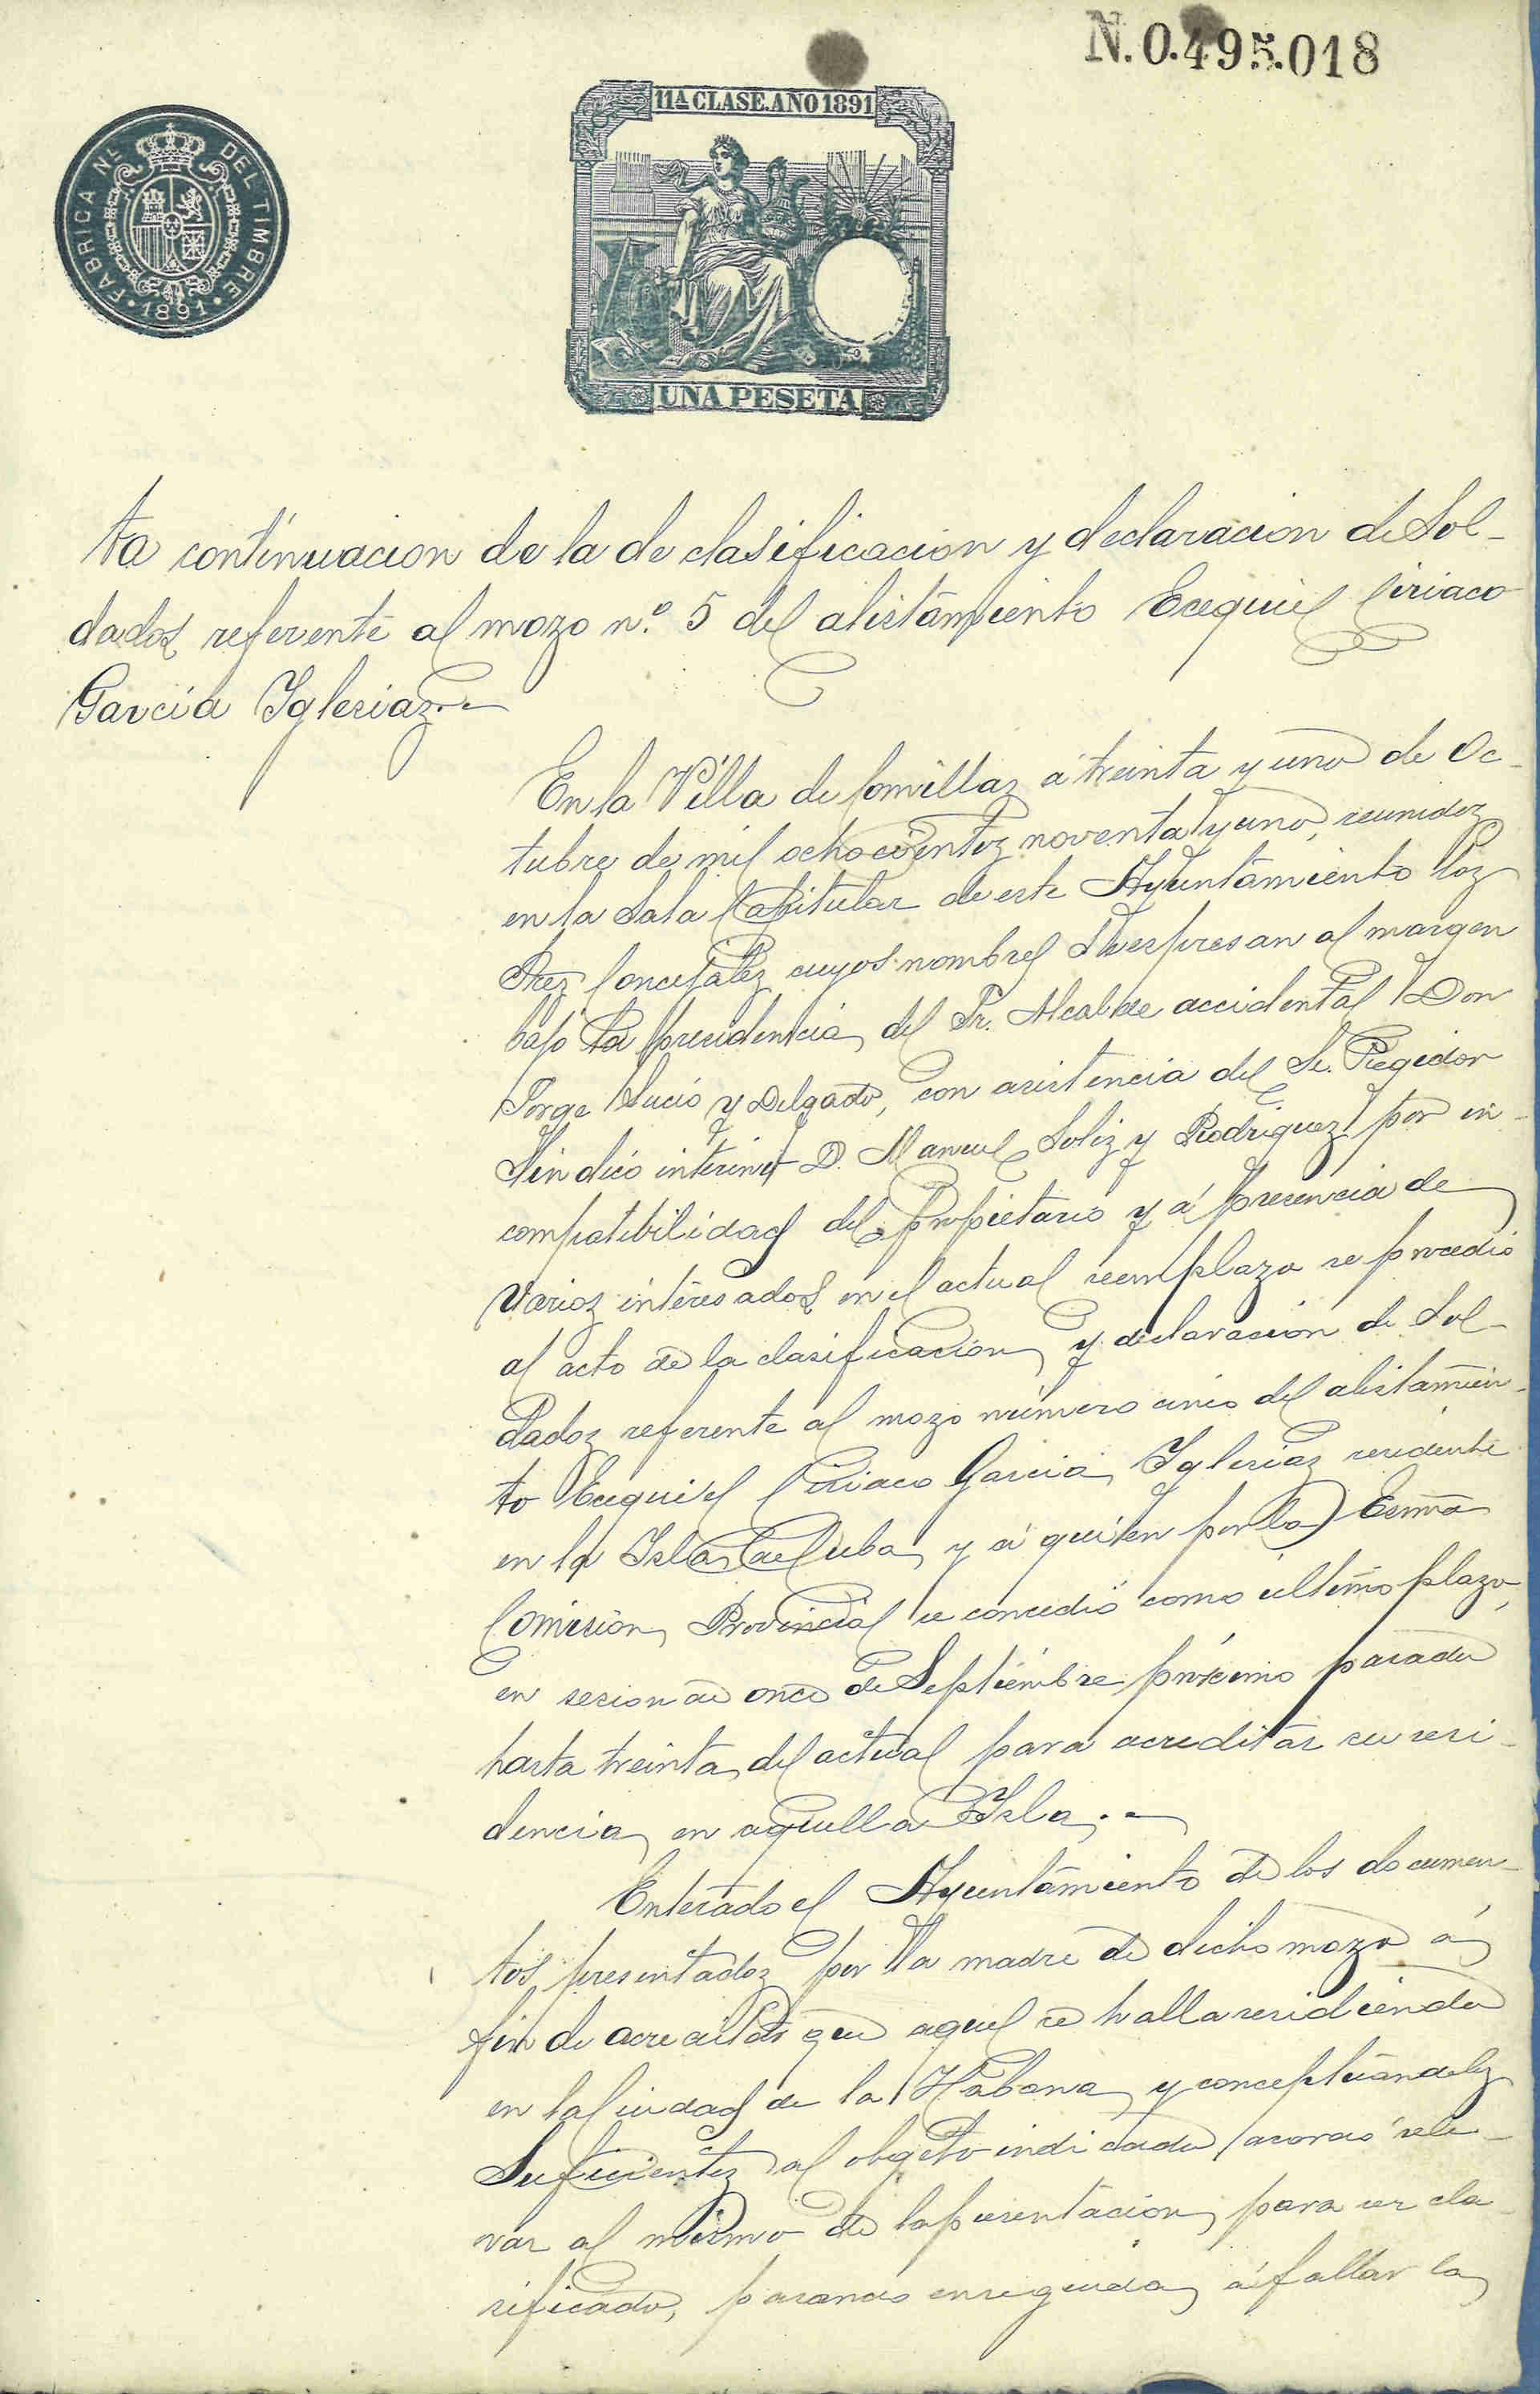 N. 0.495.018
11ª CLASE. AÑO 1891
FABRICA NL DEL TIMBRE
1891
UNA PESETA
ta continuacion de la de clasificacion y declaracion de Sol-
dados referente al mozo n.º 5 del alistamiento Ecequiel Ciriaco
Garcia Iglesias.
En la Villa de Comillas á treinta y uno de Oc-
tubre de mil ochocientos noventa y uno, reunidos
en la Sala Capitular de este Ayuntamiento los
Sres Concejales cuyos nombres se espresan al margen
bajo la presidencia del Sr. Alcalde accidental Don
Jorge Sucio y Delgado, con asistencia del Sr. Regidor
Sindico interino D. Manuel Soliz y Rodriguez por in-
compatibilidad del propietario y á presencia de
varios interesados en el actual reemplazo se procedió
al acto de la clasificacion y declaracion de Sol-
dados referente al mozo número cinco del alistamien-
to Ecequiel Ciriaco Garcia Iglesias residente
en la Isla de Cuba y á quien por la Ecsma
Comision Provincial se concedió como último plazo,
en sesion de once de Septiembre próximo pasado
hasta treinta del actual para acreditar su resi-
dencia en aquella Isla.
Enterado el Ayuntamiento de los documen-
tos presentados por la madre de dicho mozo á
fin de acreditar que aquel se halla residiendo
en la Ciudad de la Habana y conceptuandolos
Suficientes al objeto indicado acordó rele-
var al mismo de la presentacion para ser cla-
sificado, pasando enseguida á fallar la